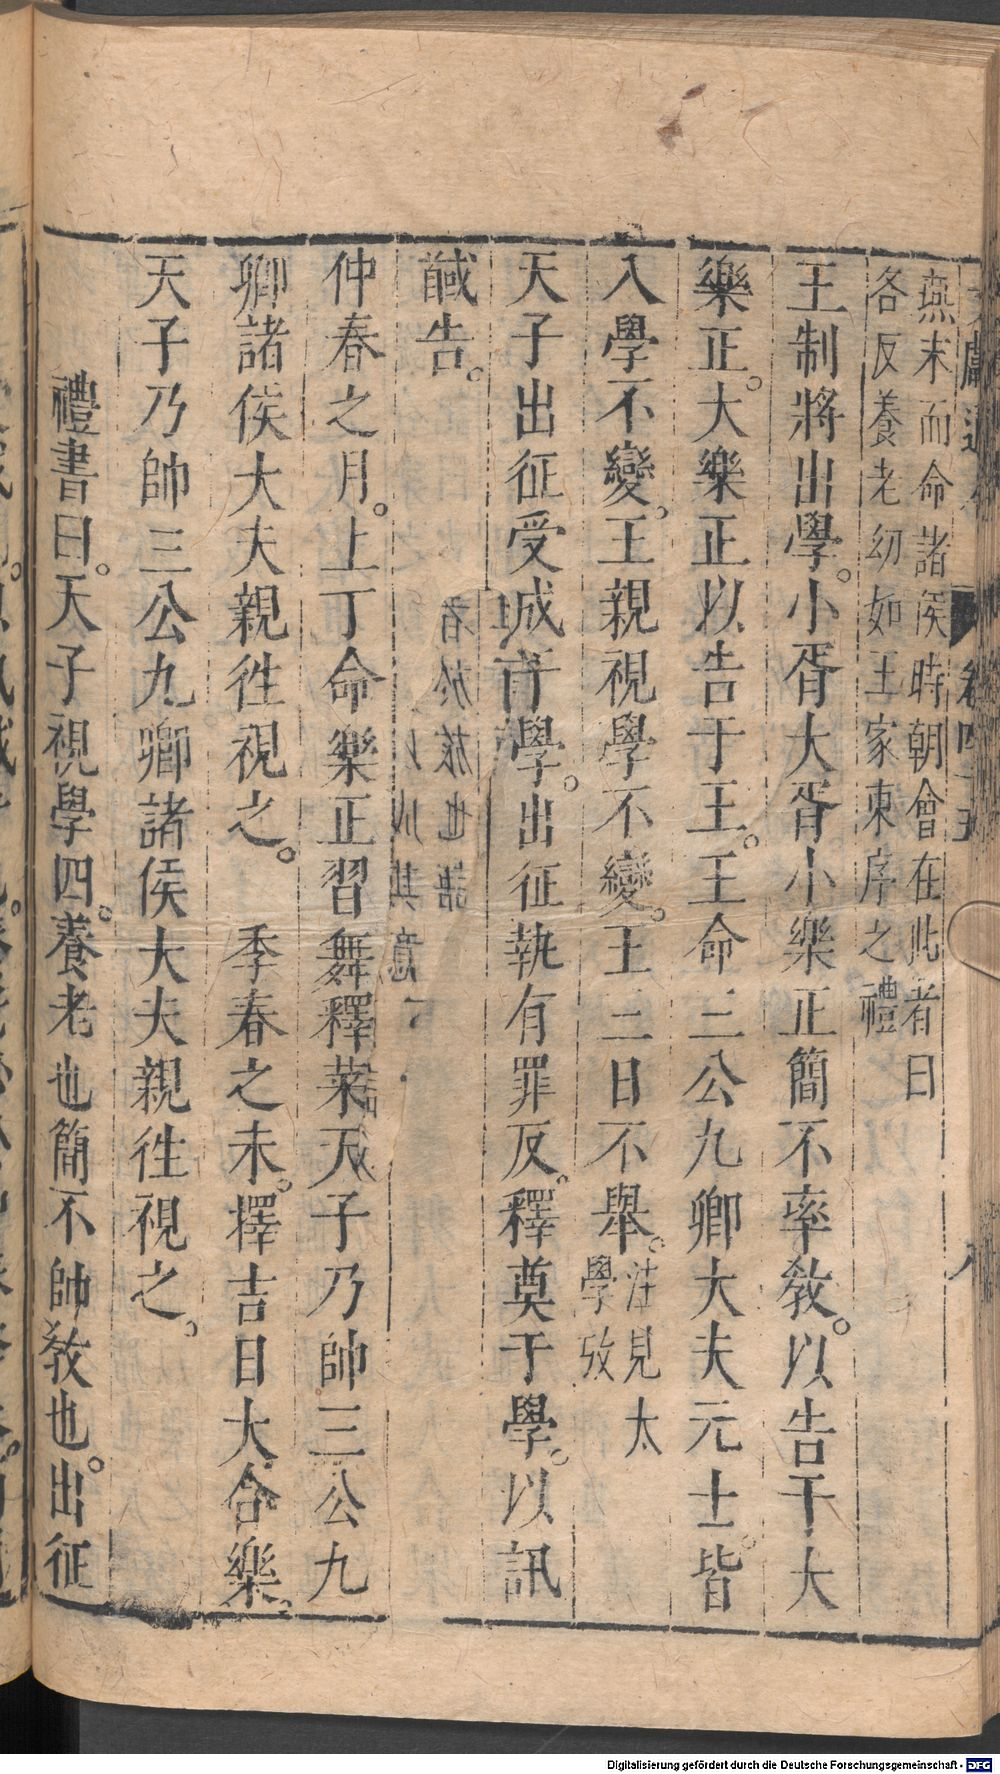 燕末而命諸侯時朝會在此者曰
各反養老幼如王家東序之禮
王制將出學。小胥大胥小樂正簡不率教。以告于大
樂正。大樂正以告于王。王命三公九卿大夫元士皆
入學不變。王親視學不變。王三日不舉。注見太
學攷
天子出征受成于學。出征執有罪反。釋奠于學。以訊
馘告。
仲春之月。上丁命樂正習舞釋菜天子乃帥三公九
卿諸侯大夫親徃視之。 季春之末。擇吉日大合樂。
天子乃帥三公九卿諸侯大夫親徃視之。
禮書曰。天子視學四。養老也簡不帥教也。出征
Digitalisierung gefördert durch die Deutsche Forschungsgemeinschaft - DFG